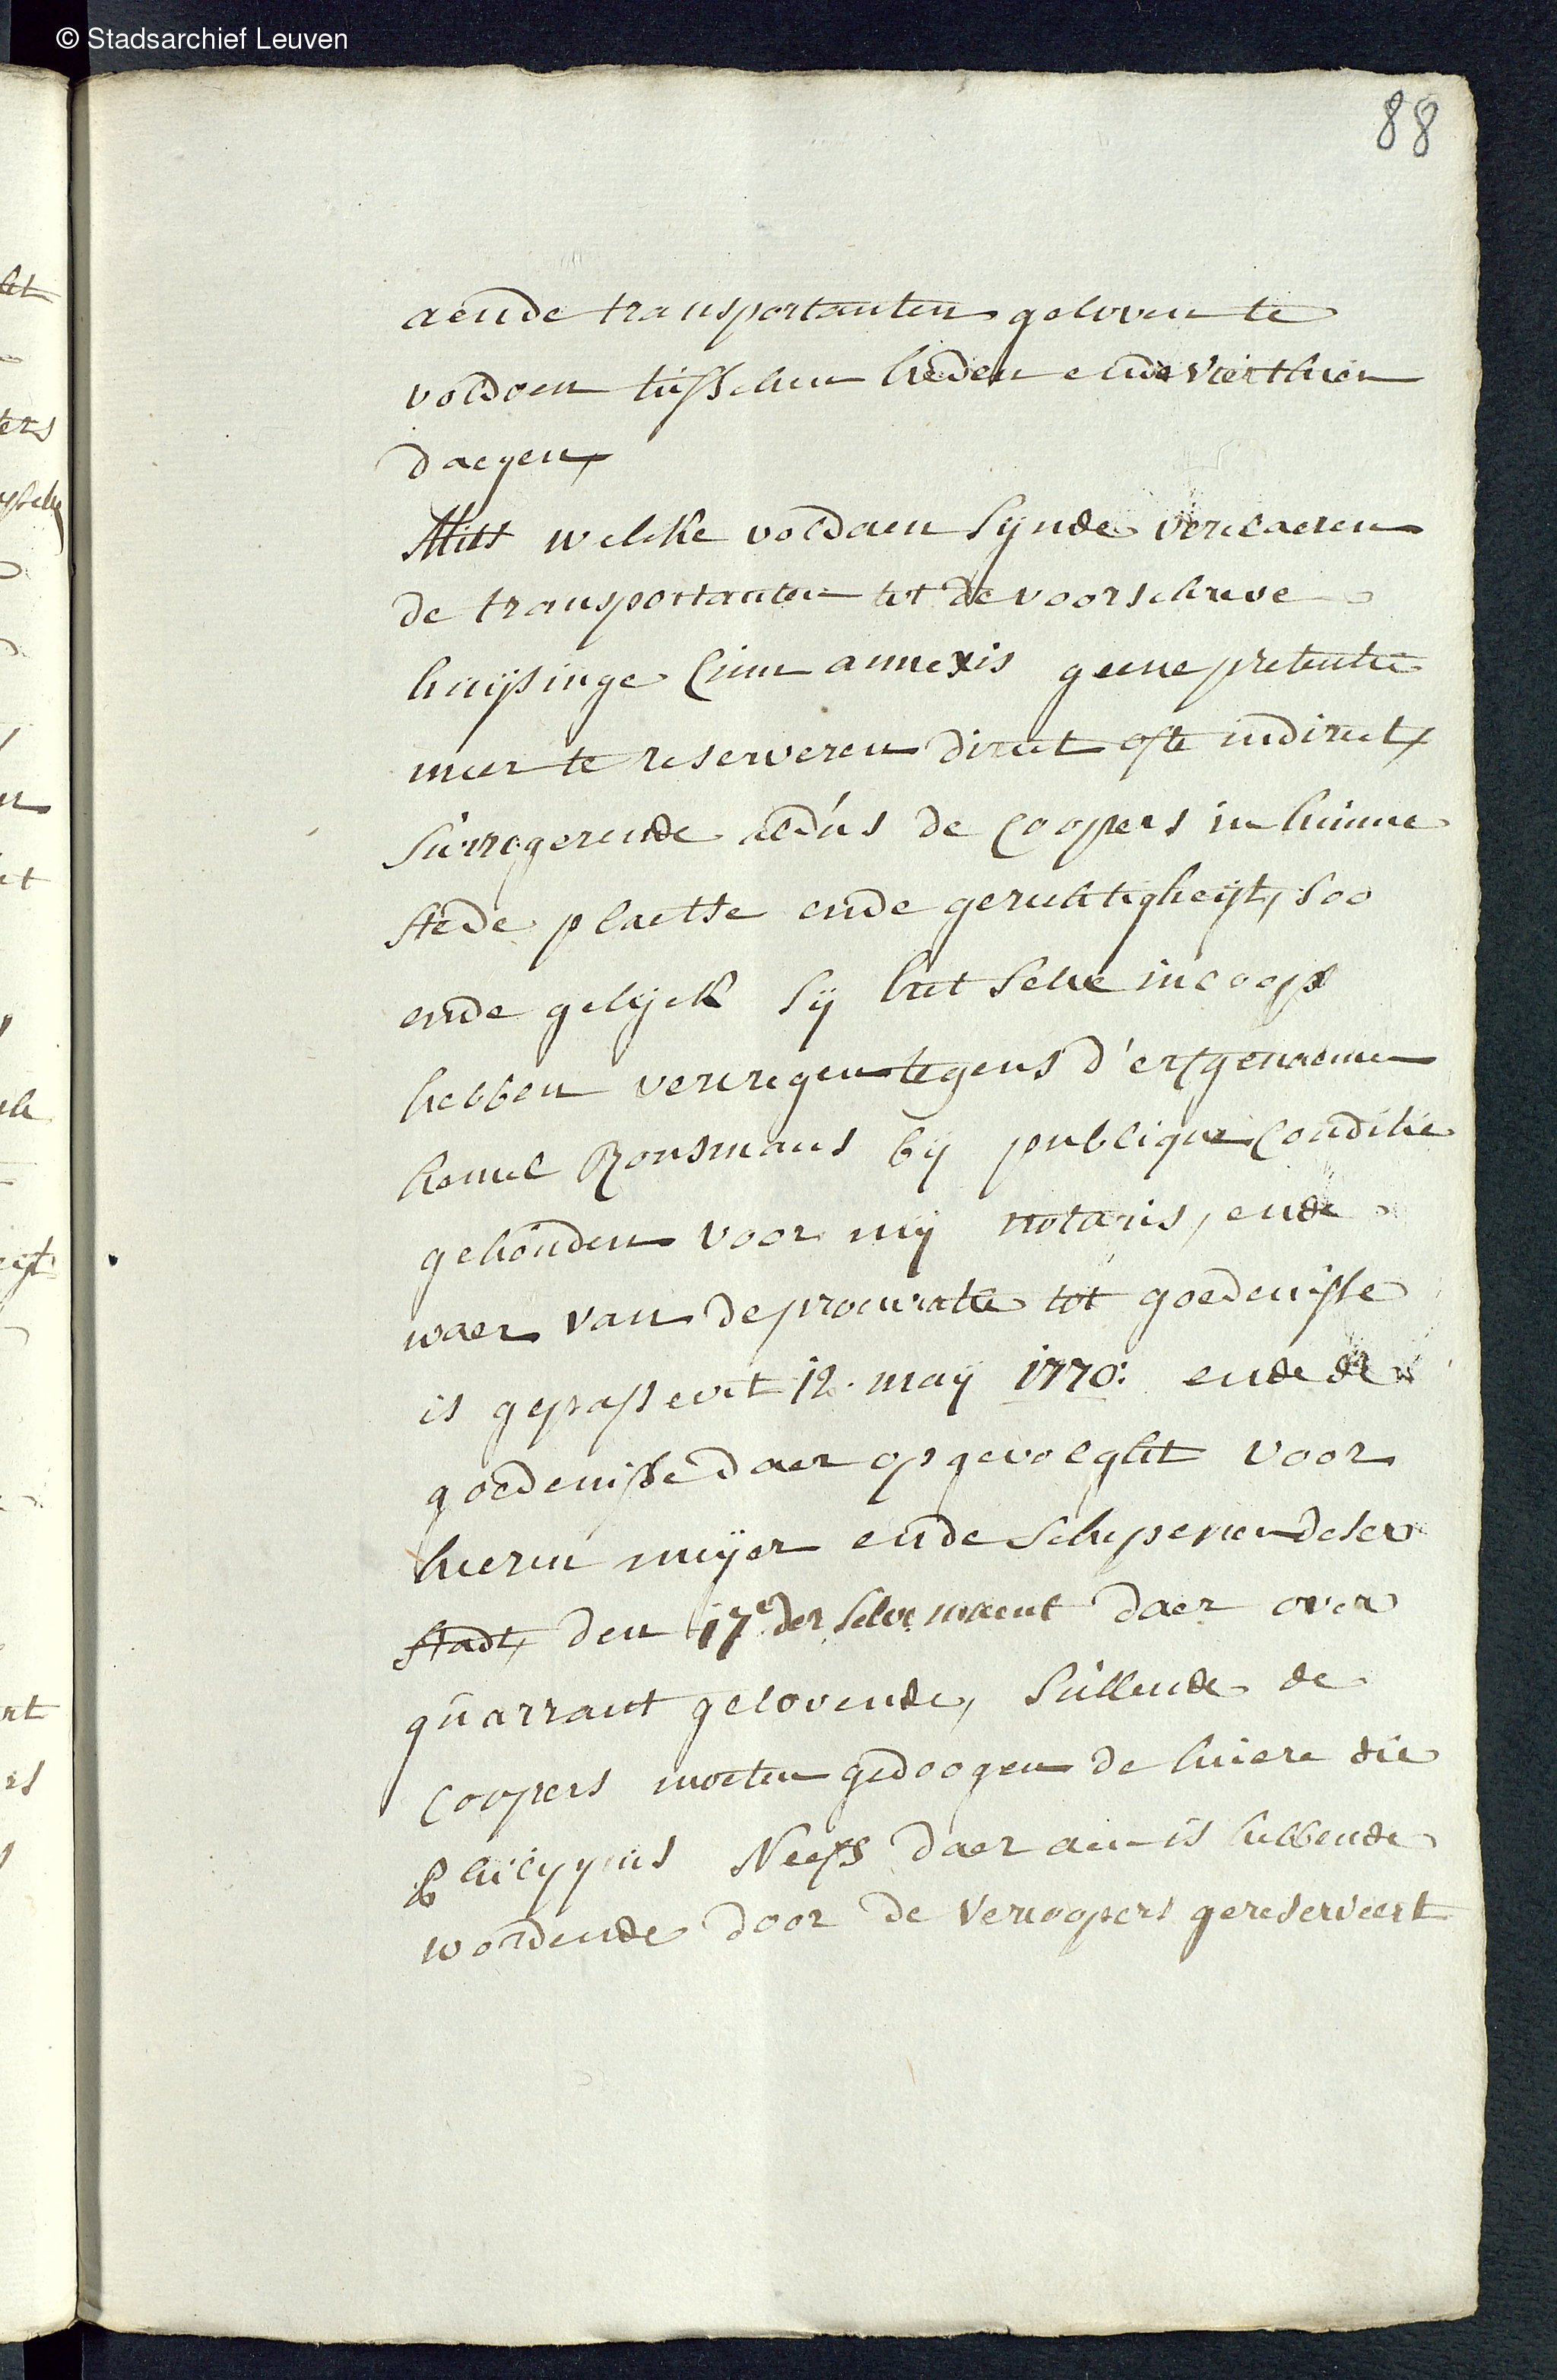 © Stadsarchief Leuven
88
aende transportanten geloven te
voldoen tusschen heden ende vierthien
daegen,
Mits welcke voldaen synde verclaeren
de transportanten tot de voorschreve
huijsinge cum annexis geene pretentie
meer te reserveren direct ofte indirect,
surrogerende aldus de coopers in hunne
stede plaetse ende gerechtigheijt, soo
ende gelyck sij het selve in coop
hebben vercregen tegens d'erfgenaemen
Ronsmans bij publique conditie
gehouden voor mij notaris, ende
waer van de procuratie tot goedenisse
is gepasseert 12. maij 1770: ende de
goedenisse daer op gevolght voor
heeren meijer ende schepenen deser
stadt, den 17e. der selve maent daer over
guarrant gelovende, sullende de
coopers moeten gedoogen de huere die
Philippus Neefs daer aen is hebbende
wordende door de vercoopers gereserveert